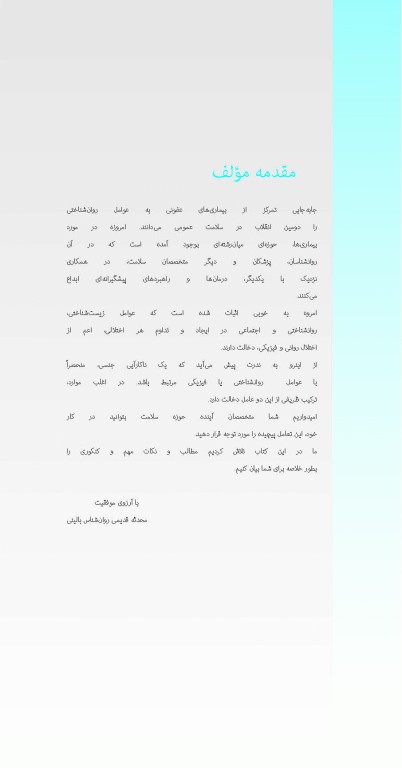 مقدمه مؤلف
جابه‌جایی تمرکز از بیماری‌های عفونی به عوامل روان‌شناختی
را دومین انقلاب در سلامت عمومی می‌دانند. امروزه در مورد
بیماری‌ها، حوزه‌ای میان‌رشته‌ای بوجود آمده است که در آن
روانشناسان، پزشکان و دیگر متخصصان سلامت، در همکاری
نزدیک با یکدیگر، درمان‌ها و راهبردهای پیشگیرانه‌ای ابداع
می‌کنند.
امروزه به خوبی اثبات شده است که عوامل زیست‌شناختی،
روانشناختی و اجتماعی در ایجاد و تداوم هر اختلالی، اعم از
اختلال روانی و فیزیکی، دخالت دارند.
از اینرو به ندرت پیش می‌آید که یک ناکارآیی جنسی، منحصراً
با عوامل روانشناختی یا فیزیکی مرتبط باشد. در اغلب موارد،
ترکیب ظریفی از این دو عامل دخالت دارد.
امیدواریم شما متخصصان آینده حوزه سلامت بتوانید در کار
خود، این تعامل پیچیده را مورد توجه قرار دهید.
ما در این کتاب تلاش کردیم مطالب و نکات مهم و کنکوری را
بطور خلاصه برای شما بیان کنیم.
با آرزوی موفقیت
محدثه قدیمی روان‌شناس بالینی